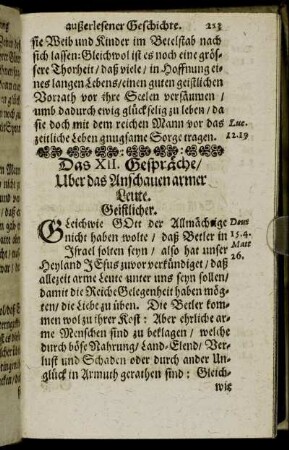 außerlesener Geschichte. 213
sie Weib und Kinder im Betelstab nach
sich lassen: Gleichwol ist es noch eine grös-
sere Thorheit / daß viele / in Hoffnung ei-
nes langen Lebens / einen guten geistlichen
Vorrath vor ihre Seelen versäumen /
und dadurch ewig glückselig zu leben / da
sie doch mit dem reichen Mann vor das Luc.
zeitliche Leben gnugsame Sorge tragen. 12.19
Das XII. Gespräche /
Uber das Anschauen armer
Leute.
Geistlicher.
Gleichwie GOtt der Allmächtige Deut
nicht haben wolte / daß Betler in 15.4.
Israel solten seyn / also hat unser Matt
Heyland JEsus zuvor verkündiget / daß 26.
allezeit arme Leute unter uns seyn sollen /
damit die Reiche Gelegenheit haben mög-
ten / die Liebe zu üben. Die Betler kom-
men wol zu ihrer Kost: Aber ehrliche ar-
me Menschen sind zu beklagen / welche
durch böse Nahrung / Land-Elend / Ver-
lust und Schaden oder durch ander Un-
glück in Armuth gerathen sind: Gleich-
wie